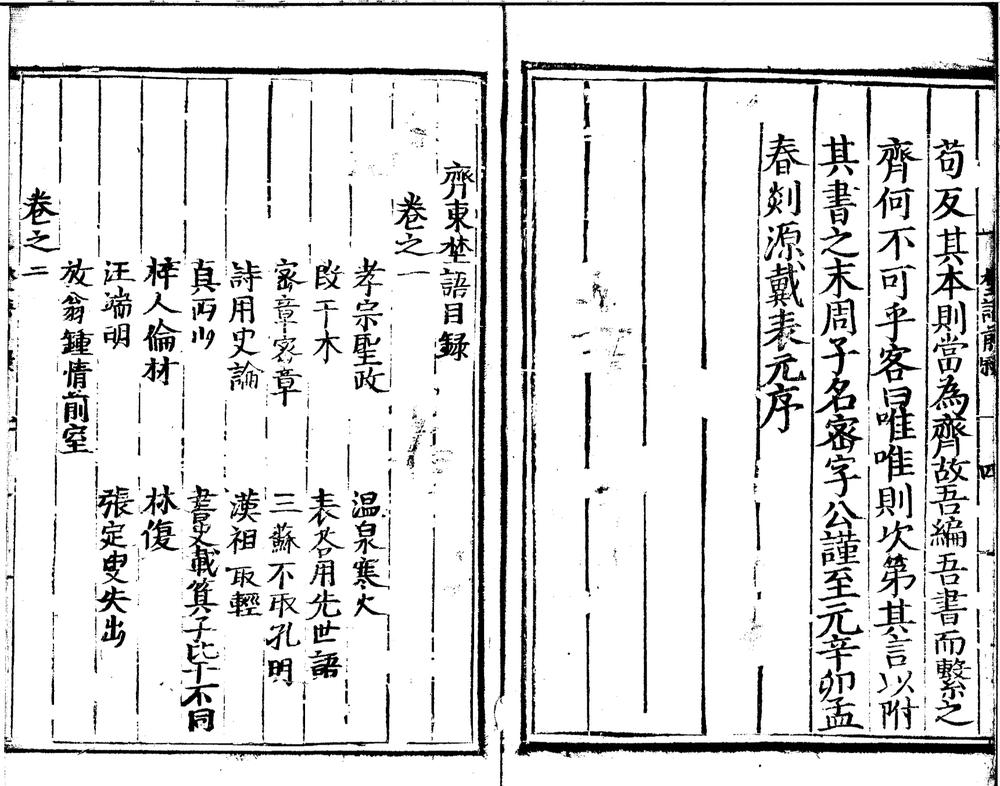 苟反其本則當為齊故吾編吾書而繫之
齊何不可乎客曰唯唯則次第其言以附
其書之末周子名密字公謹至元辛卯孟
春剡源戴表元序
齊東埜語目録
卷之一
孝宗聖政 温泉寒火
段干木 表荅用先世語
密章密章 三蘇不取孔明
詩用史論 漢祖取輕
真西山 書史載箕子比干不同
梓人倫材 林復
汪端明 張定叟失出
放翁鍾情前室
卷之二